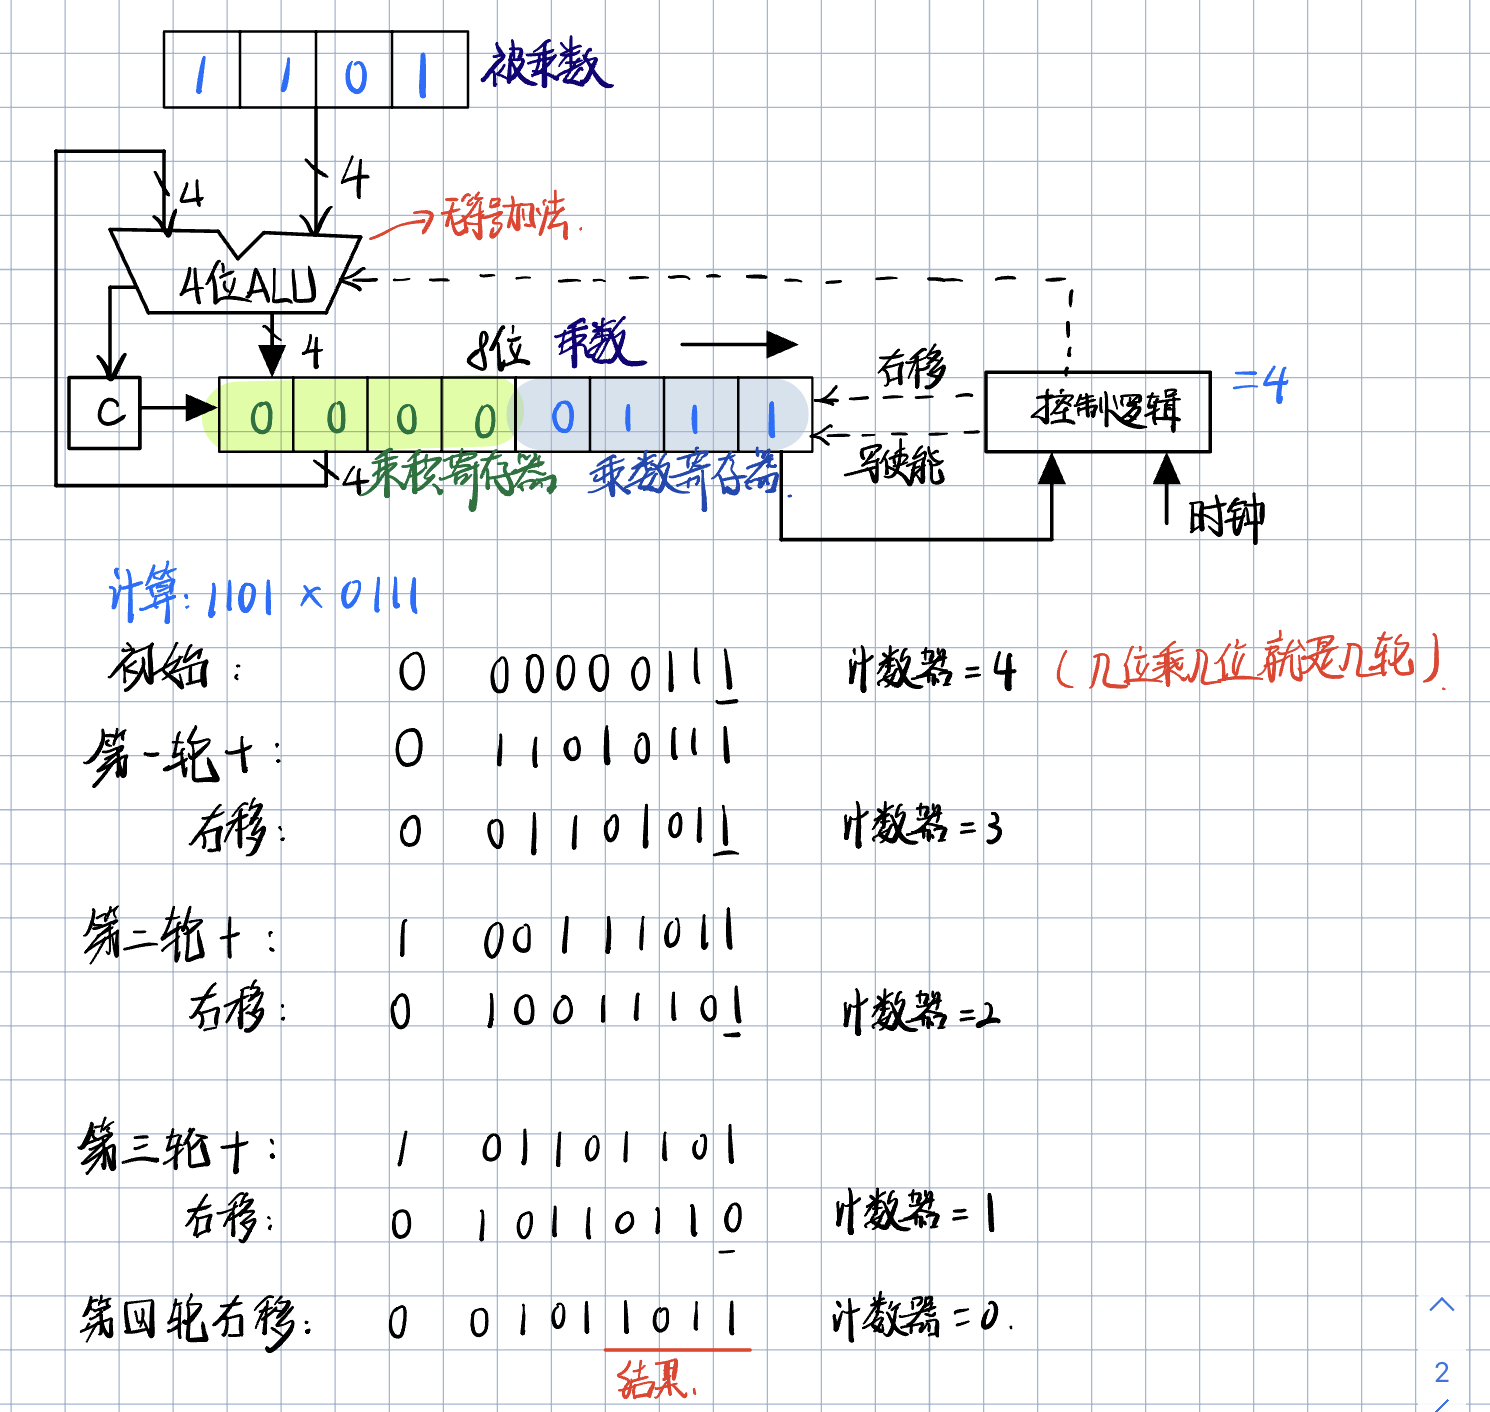 1 1 0 1 被乘数
4 4
→无符号加法.
4位ALU
4 8位 乘数
右移
C 0 0 0 0 0 1 1 1 控制逻辑 =4
写使能
4 乘积寄存器 乘数寄存器.
时钟
计算: 1101 × 0111
初始: 0 00000111 计数器=4 (几位乘几位就是几轮).
第一轮+: 0 11010111
右移: 0 01101011 计数器=3
第二轮+: 1 00111011
右移: 0 10011101 计数器=2
第三轮+: 1 01101101
右移: 0 10110110 计数器=1
第四轮右移: 0 01011011 计数器=0.
结果.
2